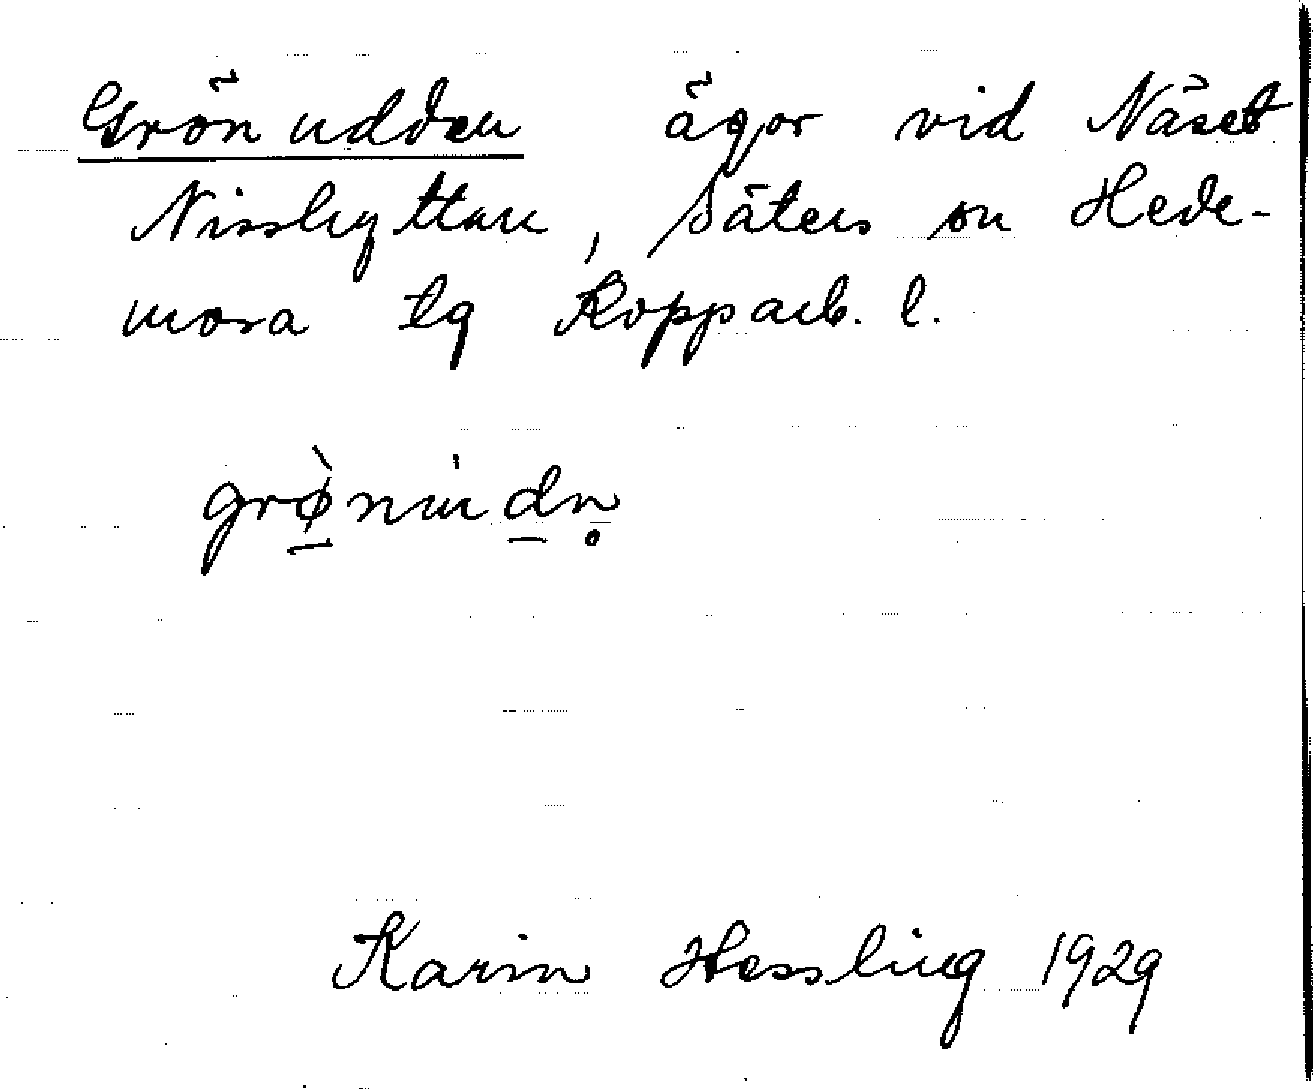 Grönudden ägor vid Näset
Nisshyttan, Säters sn Hede-
mora tg Kopparb. l.
grø̀nùdn̥
Karin Hessling 1929